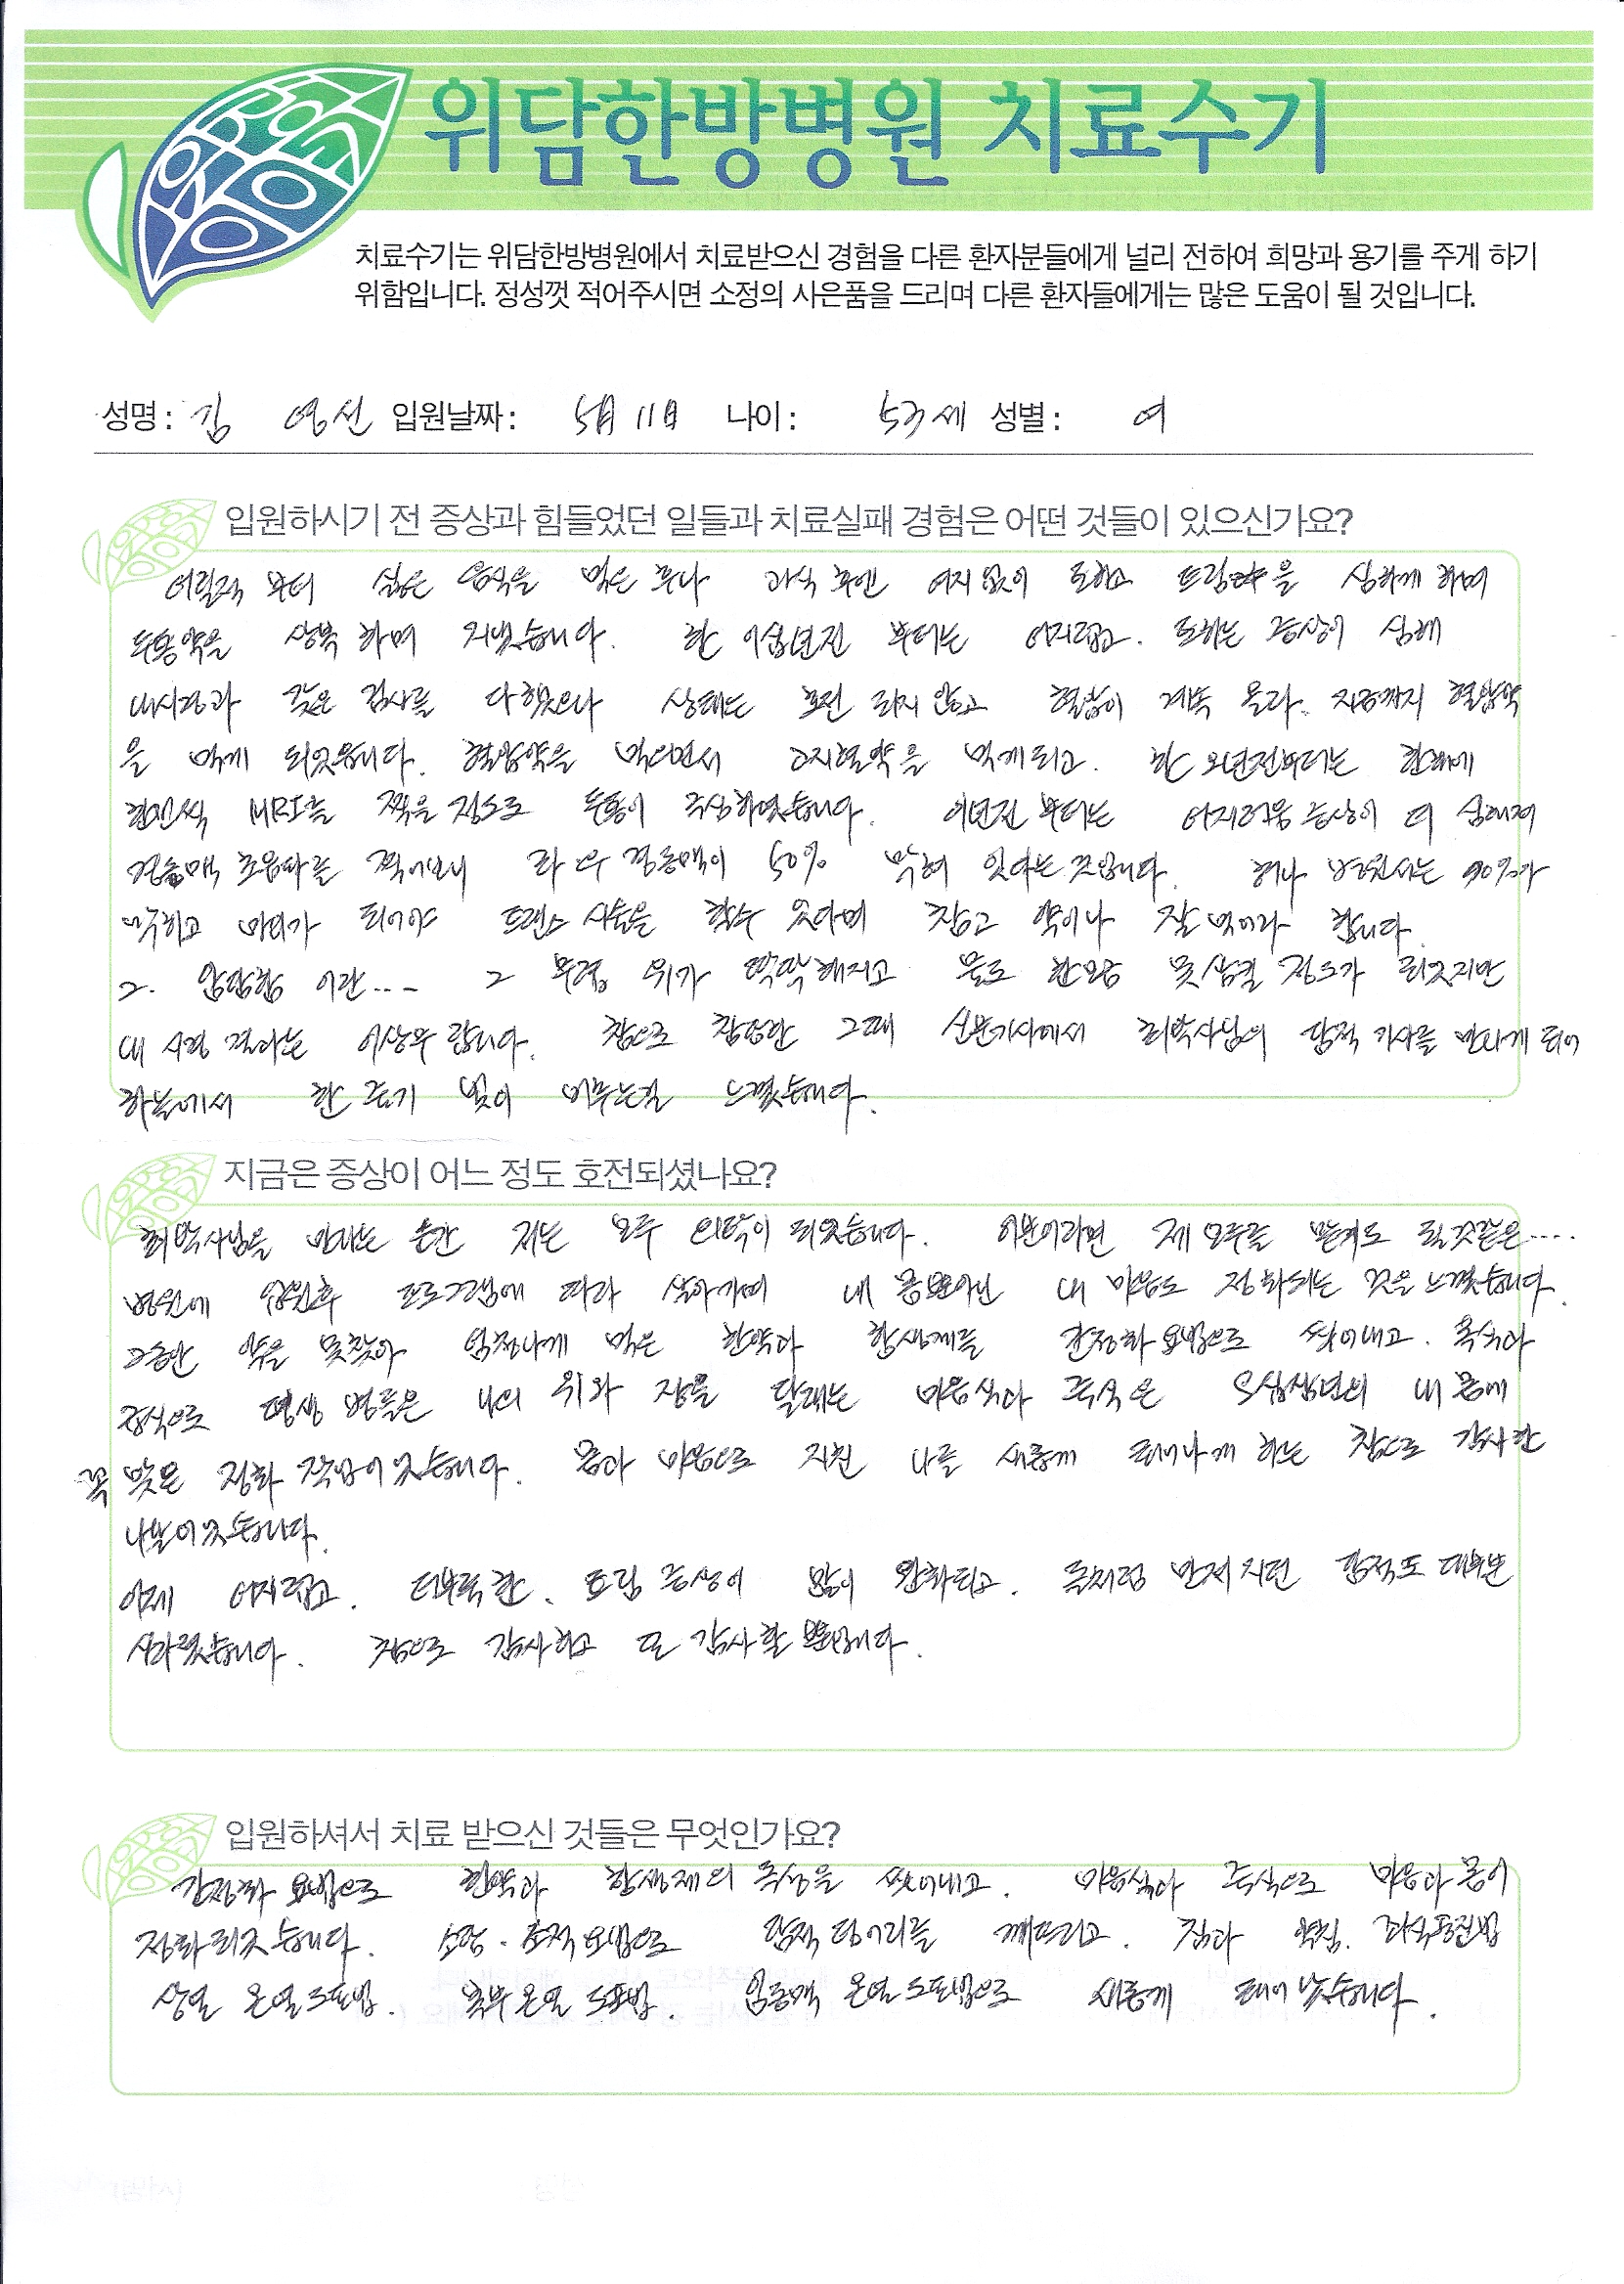 위담한방병원 치료수기
치료수기는 위담한방병원에서 치료받으신 경험을 다른 환자분들에게 널리 전하여 희망과 용기를 주게 하기
위함입니다. 정성껏 적어주시면 소정의 사은품을 드리며 다른 환자들에게는 많은 도움이 될 것입니다.
성명 : 김 영선 입원날짜 : 5월 11일 나이 : 53세 성별 : 여
입원하시기 전 증상과 힘들었던 일들과 치료실패 경험은 어떤 것들이 있으신가요?
어릴적 부터 싫은 음식을 먹은 후나 과식 후엔 여지없이 토하고 트림을 심하게 하며
두통약을 상복 하며 지냈습니다. 한 이십년전 부터는 어지럽고. 토하는 증상이 심해
내시경과 갖은 검사를 다했으나 상태는 호전 되지 않고 혈압이 계속 올라. 지금까지 혈압약
을 먹게 되었습니다. 혈압약을 먹으면서 고지혈약을 먹게되고. 한 오년전부터는 한해에
한번씩 MRI를 찍을 정도로 두통이 극심하였습니다. 이년전 부터는 어지러움 증상이 더 심해져
경동맥 초음파를 찍어보니 좌 우 경동맥이 50% 막혀 있다는 것입니다. 허나 병원서는 90%가
막히고 마비가 되어야 시술을 할수 있다며 참고 약이나 잘 먹어라 합니다.
그. 암담함 이란... 그 무렵 위가 딱딱해지고 물도 한모금 못삼킬 정도가 되었지만
내시경 결과는 이상무 랍니다. 참으로 참담한 그때 신문기사에서 최박사님의 담적 기사를 만나게 되어
하늘에서 한 줄기 빛이 비추는걸 느꼈습니다.
지금은 증상이 어느 정도 호전되셨나요?
최박사님을 만나는 순간 저는 모두 되었습니다. 이분이라면 제 모두를 맡겨도 될것같은....
병원에 입원후 프로그램에 따라 살아가며 내 몸뿐아닌 내 마음도 정화되는 것을 느꼈습니다.
그동안 약을 못찾아 엄청나게 먹은 한약과 항생제를 간정화요법으로 씻어내고. 독식과
정식으로 평생 병들은 나의 위와 장을 달래는 마음식과 죽식은 오십삼년의 내 몸에
꼭 맞은 정화 작업이었습니다. 몸과 마음으로 지친 나를 새롭게 태어나게 하는 참으로 감사한
나날이었습니다.
이제 어지럽고. 더부룩한. 트림 증상이 많이 완화되고. 돌처럼 만져지던 담적도 대부분
사라졌습니다. 참으로 감사하고 또 감사할 뿐입니다.
입원하셔서 치료 받으신 것들은 무엇인가요?
간정화 요법으로 한약과 항생제의 독성을 씻어내고. 마음식과 죽식으로 마음과 몸이
정화되었습니다. 소적요법으로 담적 덩어리를 깨뜨리고. 침과 약침.
상열 온열도포법. 복부 온열 도포법. 임동맥 온열도포법으로 새롭게 태어 났습니다.